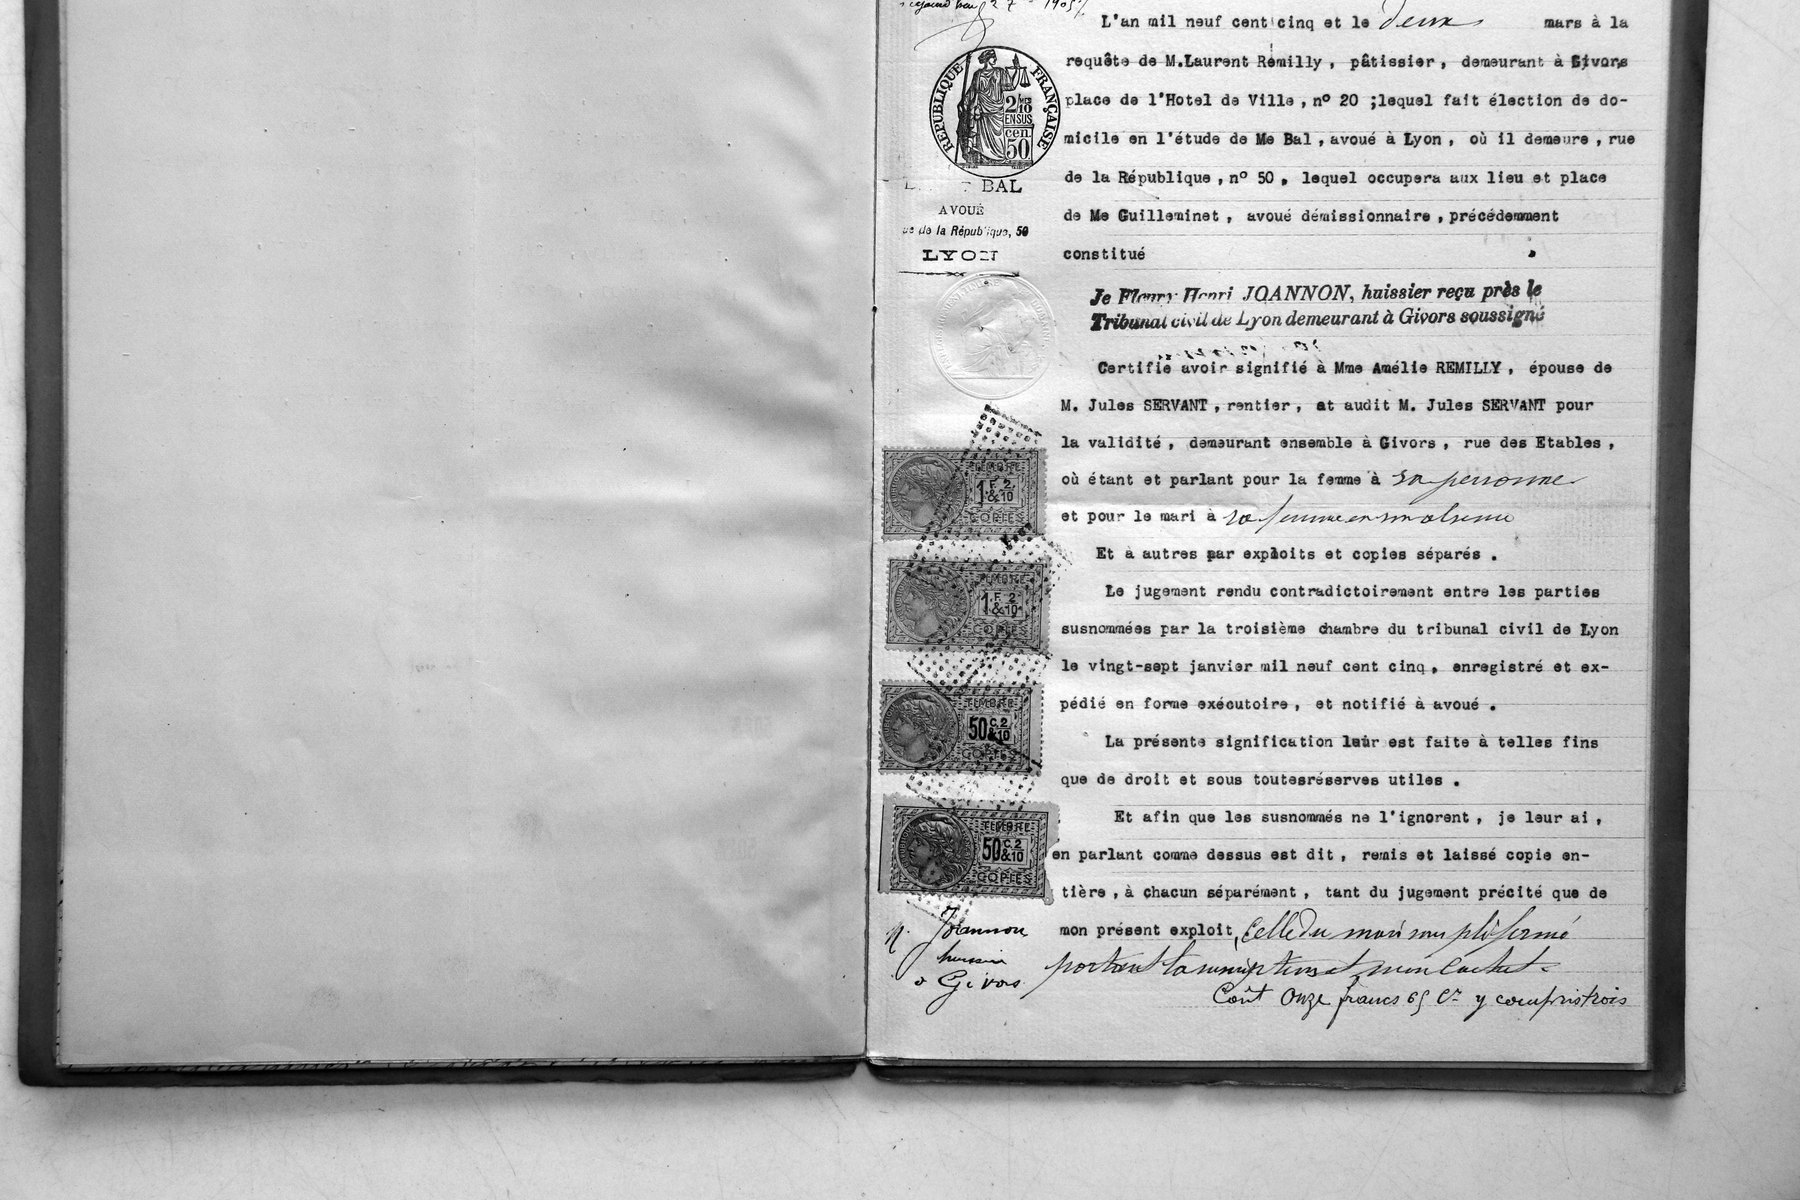 27 1905
L'an mil neuf cent cinq et le deux mars à la
requête de M.Laurent Rémilly, pâtissier, demeurant à Givors
place de l'Hotel de Ville, nº 20 ;lequel fait élection de do-
micile en l'étude de Me Bal, avoué à Lyon, où il demeure, rue
de la République, nº 50, lequel occupera aux lieu et place
de Me Guilleminet, avoué démissionnaire, précédemment
constitué
RÉPUBLIQUE FRANÇAISE
2/10
EN SUS
cen.
50
BAL
AVOUÉ
ue de la République, 50
LYON
Je Fleury Henri JOANNON, huissier reçu près le
Tribunal civil de Lyon demeurant à Givors soussigné
Certifie avoir signifié à Mme Amélie REMILLY, épouse de
M. Jules SERVANT, rentier, at audit M. Jules SERVANT pour
la validité, demeurant ensemble à Givors, rue des Etables,
où étant et parlant pour la femme à sa personne
et pour le mari à sa femme en son absence
Et à autres par exploits et copies séparés.
Le jugement rendu contradictoirement entre les parties
susnommées par la troisième chambre du tribunal civil de Lyon
le vingt-sept janvier mil neuf cent cinq, enregistré et ex-
pédié en forme exécutoire, et notifié à avoué.
La présente signification leur est faite à telles fins
que de droit et sous toutesréserves utiles.
Et afin que les susnommés ne l'ignorent, je leur ai,
en parlant comme dessus est dit, remis et laissé copie en-
tière, à chacun séparément, tant du jugement précité que de
mon présent exploit, Celle du mari sous pli fermé
portant la suscription et mon cachet.
Coût Onze francs 65 Cs y compris trois
TIMBRE
1 F. 2
&10
COPIES
TIMBRE
1 F. 2
&10
COPIES
TIMBRE
50 C. 2
&10
COPIES
TIMBRE
50 C. 2
&10
COPIES
H. Joannon
huissier
à Givors